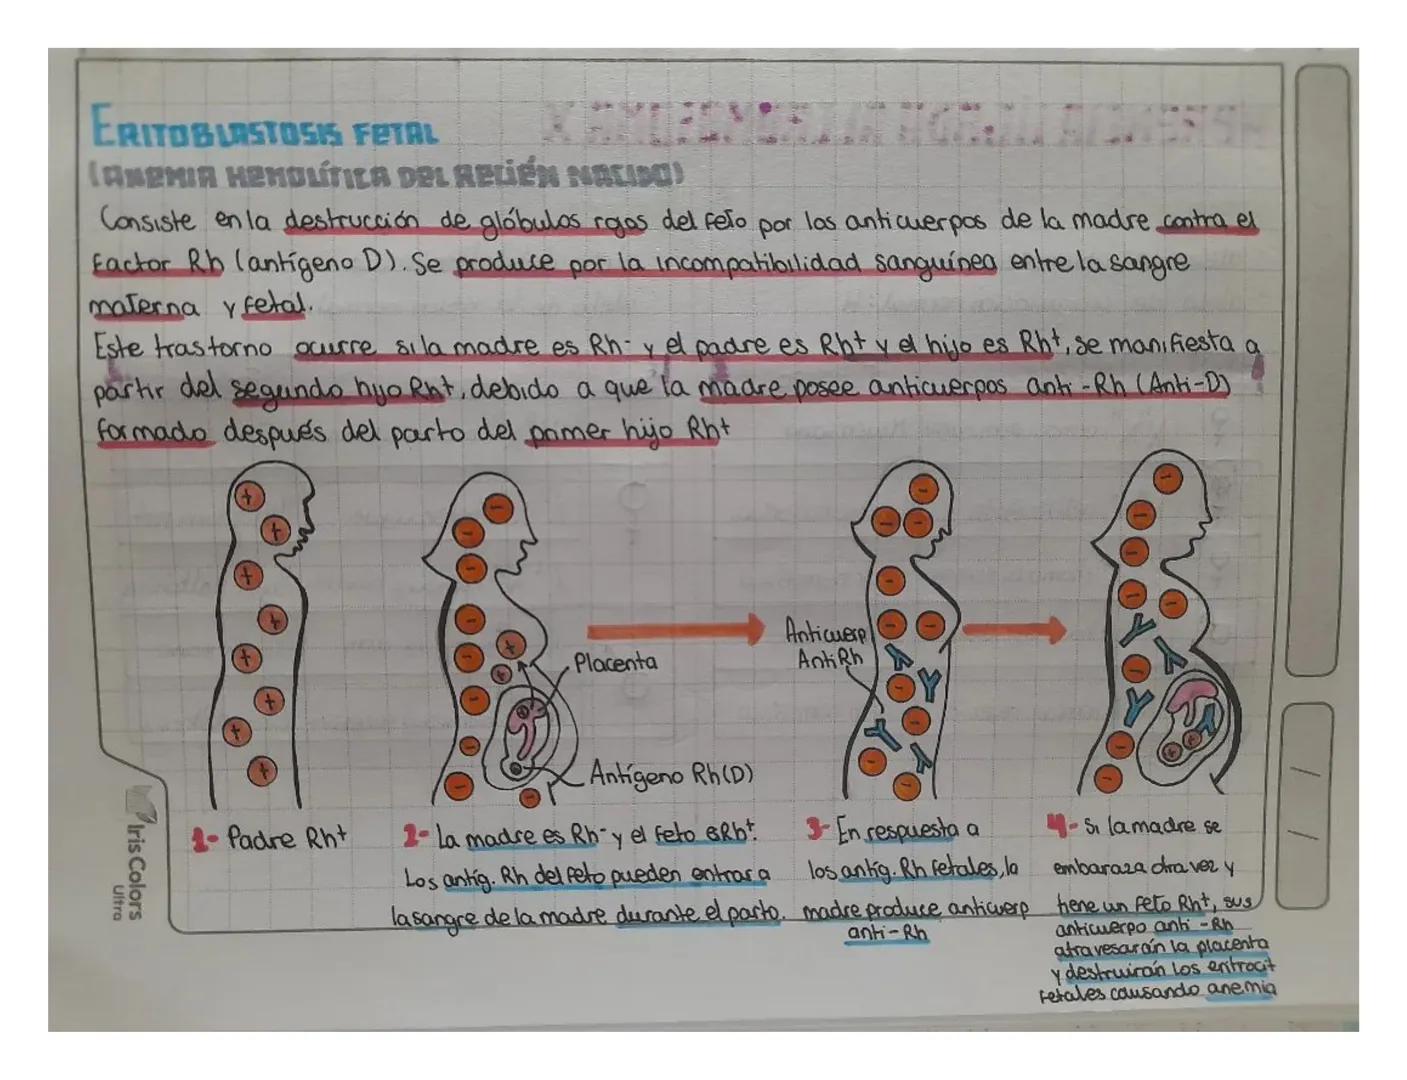 ERITOBLASTOSIS FETAL
(ANEMIA HEMOLÍTICA DEL RECIÉN NACIDO)
Consiste en la destrucción de glóbulos rojos del feto por los anticuerpos de la madre contra el
factor Rh (antígeno D). Se produce por la incompatibilidad sanguínea entre la sangre
materna y fetal.
Este trastorno ocurre si la madre es Rh- y el padre es Rh+ y el hijo es Rh+, se manifiesta a
partir del segundo hijo Rh+, debido a que la madre posee anticuerpos anti-Rh (Anti-D)
formado después del parto del primer hijo Rh+
Placenta
Antígeno Rh(D)
Anticuerp
AntiRh
1- Padre Rh+
2- La madre es Rh- y el feto es Rh+.
Los antíg. Rh del feto pueden entrar a
la sangre de la madre durante el parto.
3- En respuesta a
los antíg. Rh fetales, la
madre produce anticuerp
anti-Rh
4- Si la madre se
embaraza otra vez y
tiene un feto Rh+, sus
anticuerpo anti-Rh
atravesarán la placenta
y destruirán los eritrocit
fetales causando anemia
IrisColors
Ultra